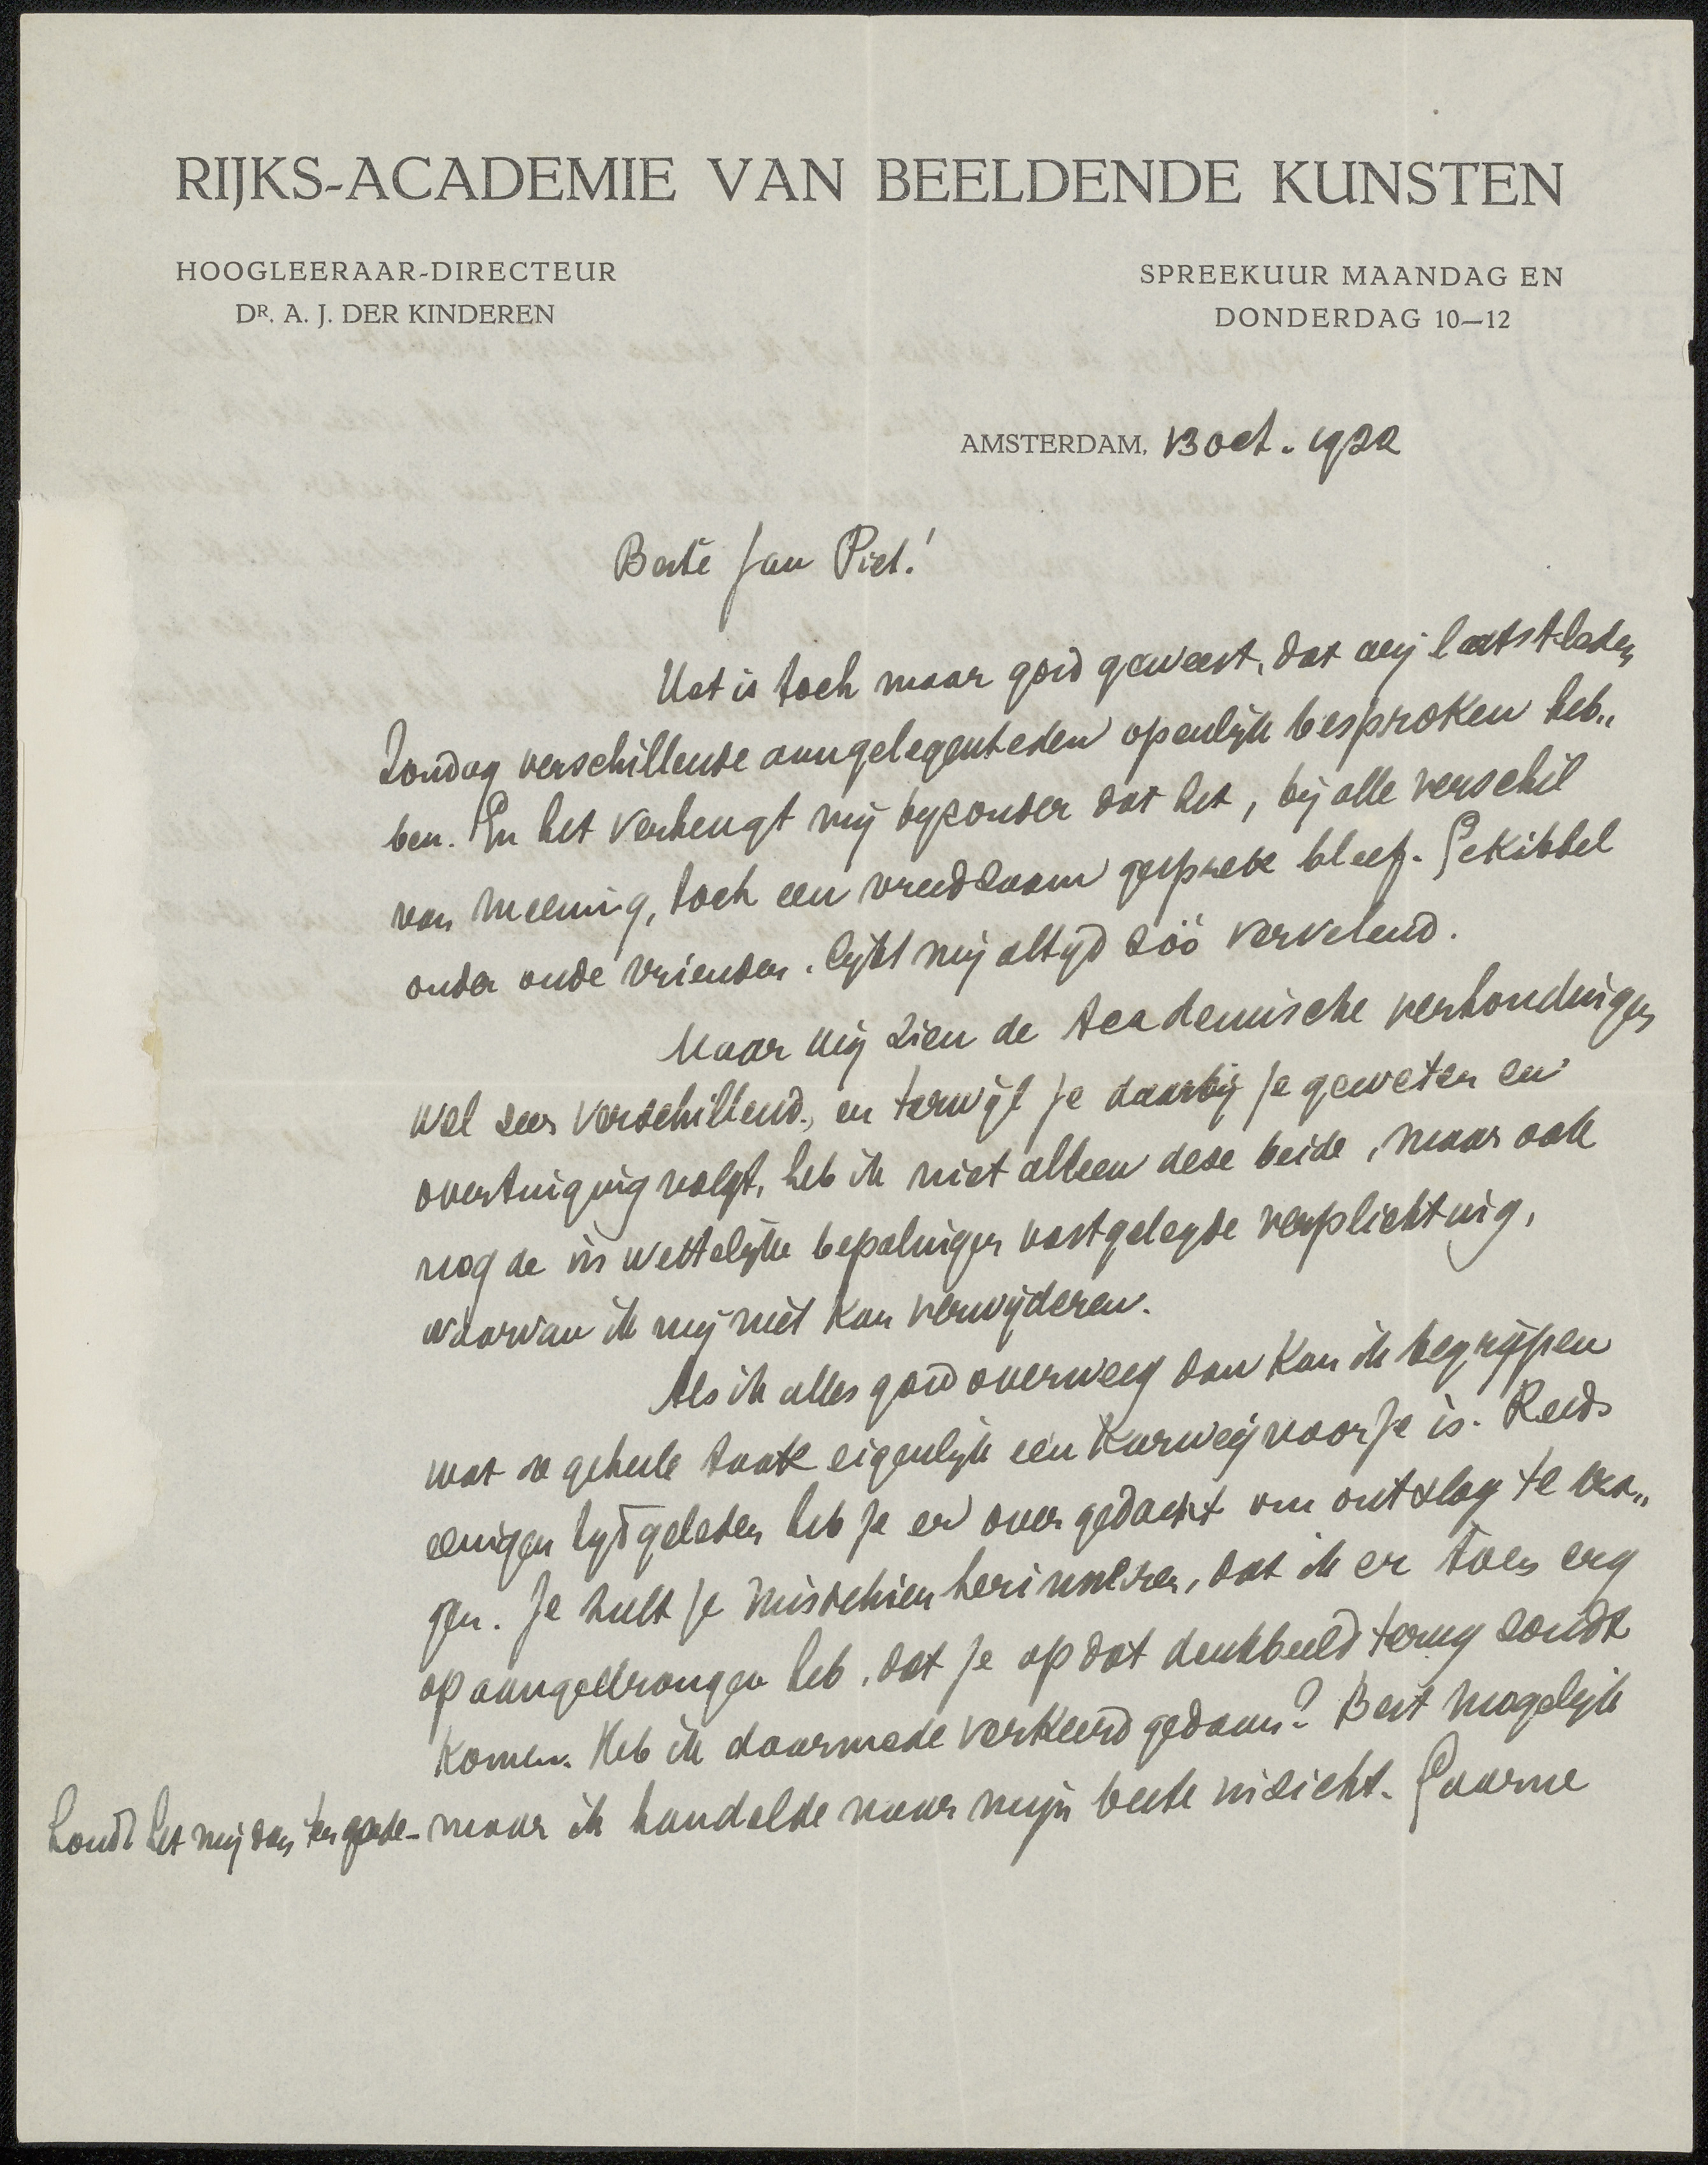 RIJKS-ACADEMIE VAN BEELDENDE KUNSTEN
HOOGLEERAAR-DIRECTEUR
DR. A. J. DER KINDEREN
SPREEKUUR MAANDAG EN
DONDERDAG 10—12
AMSTERDAM, 13 oct. 1922
Beste Jan Piet!
Het is toch maar goed geweest, dat wij laatstleden
Zondag verschillende aangelegenheden openlijk besproken heb„
ben. En het verheugt mij byzonder dat het, bij alle verschil
van meening, toch een vreedzaam gesprek bleef. Gekibbel
onder oude vrienden lykt mij altyd zóó vervelend.
Maar wij zien de Academische verhoudingen
wel zeer verschillend, en terwijl je daarbij je geweten en
overtuiging volgt, heb ik niet alleen deze beide, maar ook
nog de in wettelijke bepalingen vastgelegde verplichting,
waarvan ik mij niet kan verwijderen.
Als ik alles goed overweeg dan kan ik begrijpen
wat de geheele taak eigenlijk een karweij voor je is. Reeds
eenigen tyd geleden heb je er over gedacht om ontslag te vra„
gen. Je zult je misschien herinneren, dat ik er toen erg
op aangedrongen heb, dat je op dat denkbeeld terug zoudt
komen. Heb ik daarmede verkeerd gedaan? Best mogelijk
houdt het mij dan ten goede - maar ik handelde naar mijn beste inzicht. Gaarne